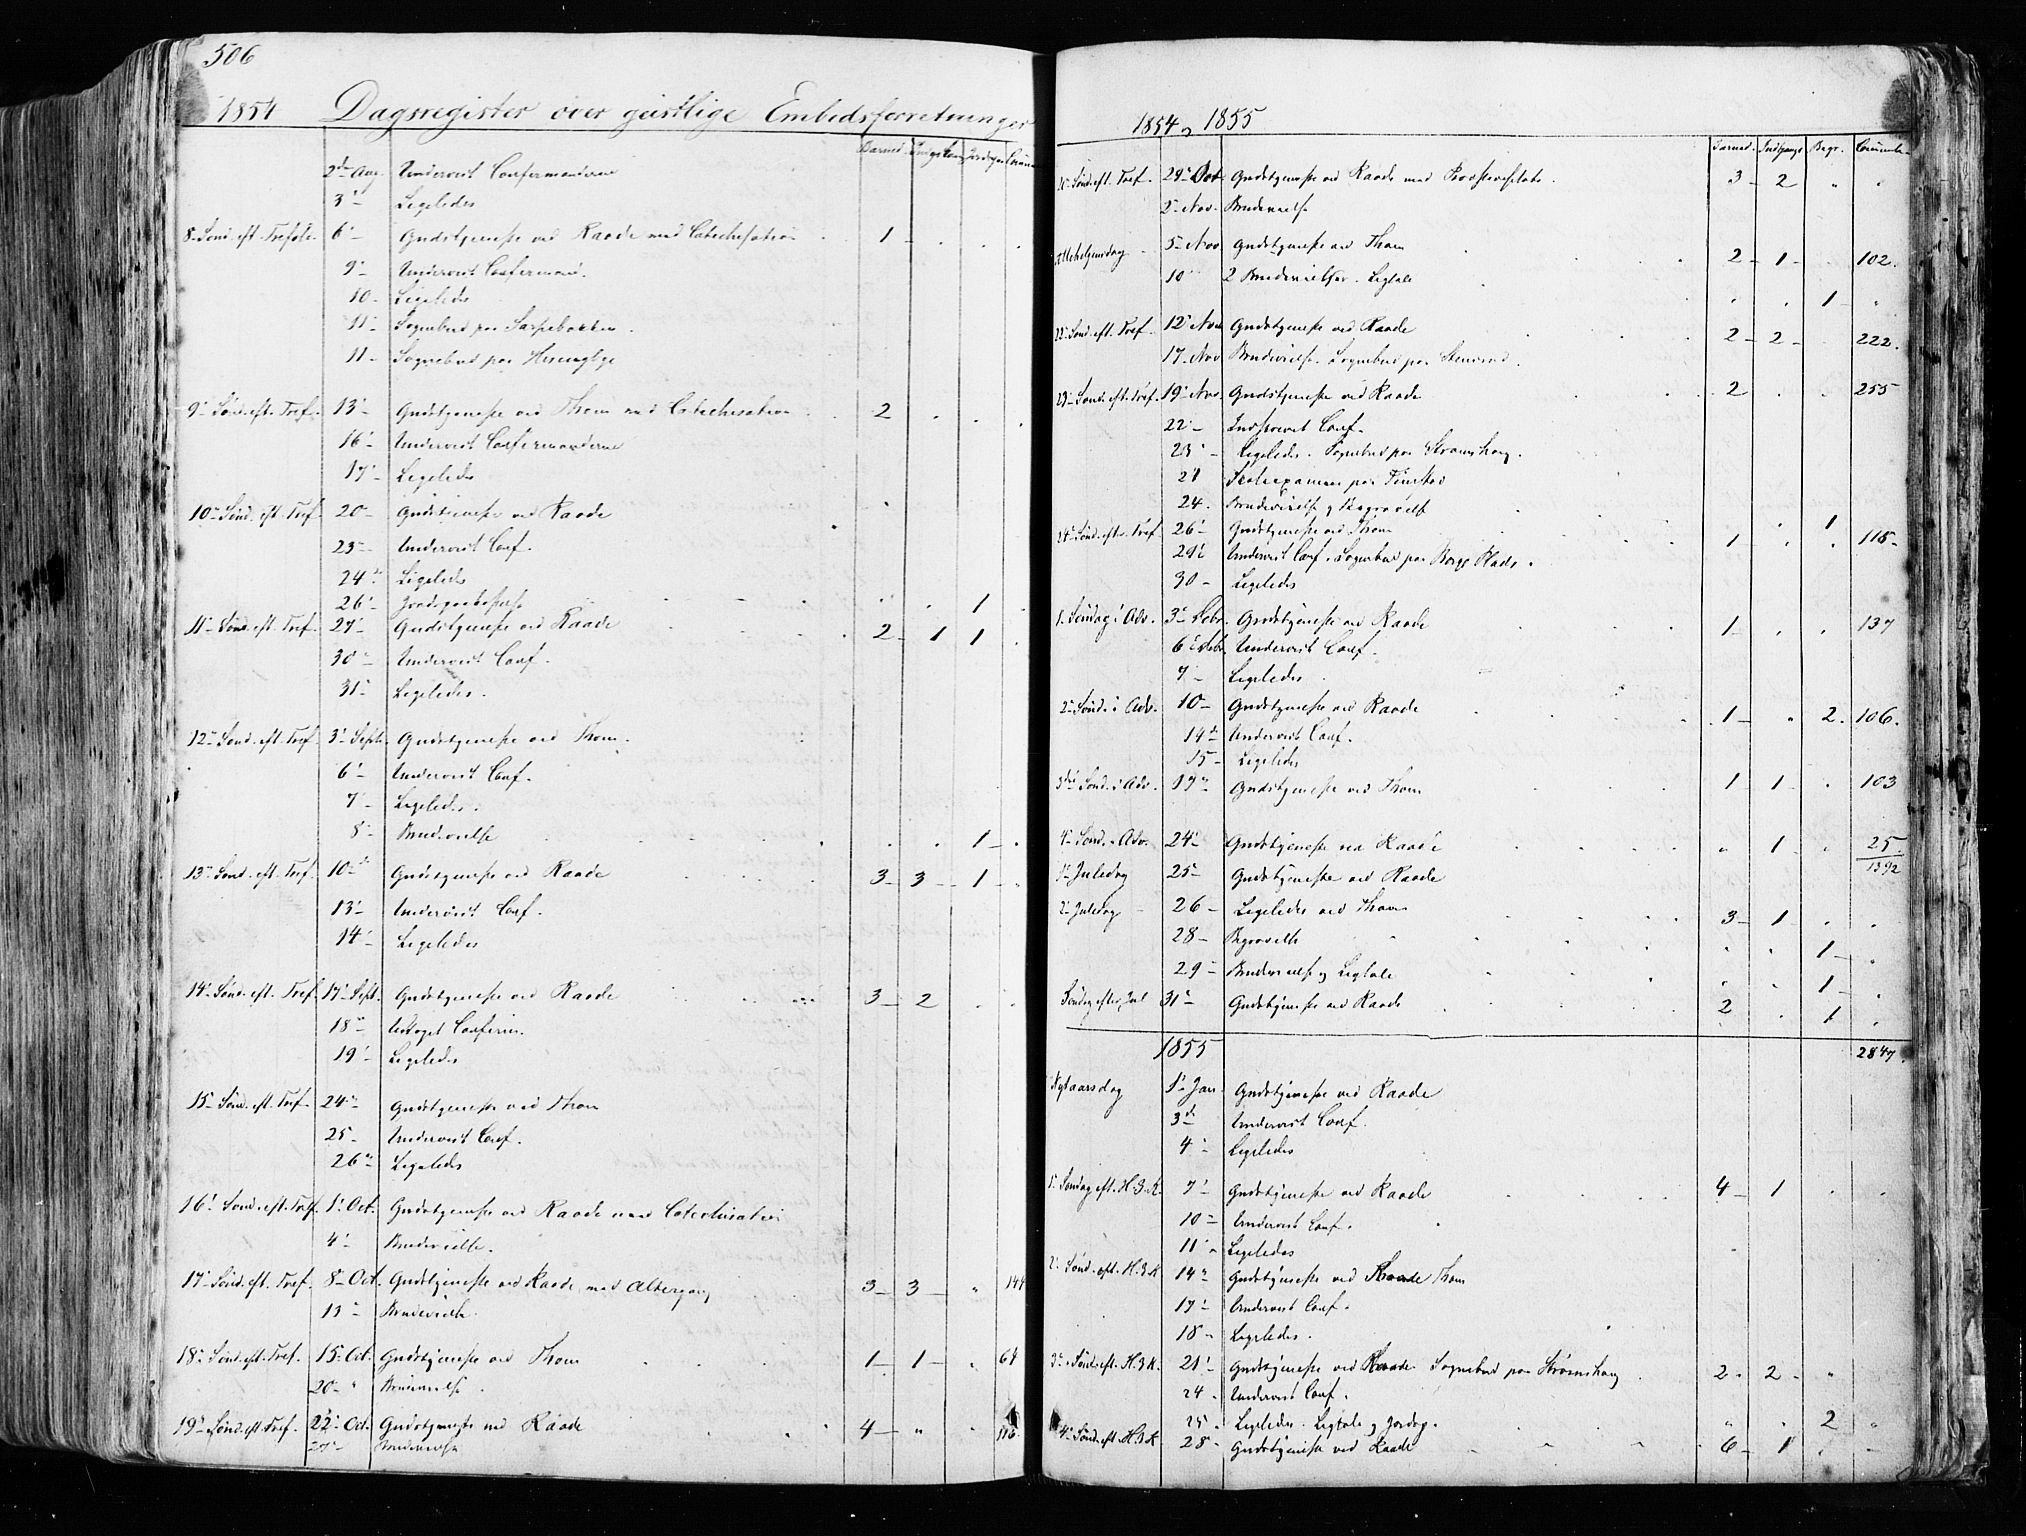 506
1854 Dagsregister over geistlige Embedsforretninger
2den Aug. Underviist Confirmanderne
3' Ligeledes
8 Sønd. eft. Trefold. 6' Gudstjeneste ved Raade med Catechisation 1
9' Underviist Confirmand.
10 Ligeledes
11' Sognebud paa
11 Sognebud paa
9' Sønd. eft. Tref. 13' Gudstjeneste ved Thom med Catechisation 2
16' Underviist Confirmanderne
17' Ligeledes
10 Sønd. eft. Tref. 20 Gudstjeneste ved Raade
23 Underviist Conf.
24 Ligeleds
26' Jordspaakastelse 1
11 Sønd. eft. Tref. 27' Gudstjeneste ved Raade 2 1 1
30 Underviist Conf.
31 Ligeledes.
12 Sønd. eft. Tref. 3' Septb. Gudstjeneste ved Thom.
6' Underviist Conf.
7' Ligeledes.
8' Brudevielse 1
13 Sønd. eft. Tref. 10 Gudstjeneste ved Raade 3 3 1
13' Underviist Conf.
14' Ligeledes
14' Sønd. eft. Tref. 17' Sept. Gudstjeneste ved Raade 3 2
18 Conferm.
19' Ligeledes
15 Sønd. eft. Tref. 24 Gudstjeneste ved Thom
25 Underviist Conf.
26 Ligeledes
16' Sønd. eft. Tref. 1' Oct. Gudstjeneste ved Raade med Catechisation
4' Brudevielse.
17' Sønd. eft. Tref. 8 Oct. Gudstjeneste ved Raade med Altergang 3 3 " 144
13 Brudevielse.
18' Sønd. eft. Tref. 15 Oct. Gudstjeneste ved Thom 1 1 " 64
20 " Brudevielse.
19' Sønd. eft. Tref. 22' Oct. Gudstjeneste ved Raade 4 "
27 Brudevielse
1854 og 1855
Sønd. eft. Tref. 29 Oct. Gudstjeneste ved Raade med 3 2 " "
2 Nov. Brudevielse
Allehelgensdag 5 Nov. Gudstjeneste ved Thom 2 1 102.
10 2 Brudevielser. Ligtale 1 "
22 Sønd. eft. Tref. 12 Nov Gudstjeneste ved Raade 2 2 222.
17 Nov Brudevielse. Sognebud paa
23 Sønd. eft. Tref. 19 Nov. Gudstjeneste ved Raade 2 255
22 Conf.
23 Ligeledes. Sognebud paa Strømshaug.
21 Skoleexamen paa
24. Brudevielse og Begravelse 1
24 Sønd. eft. Tref. 26' Gudstjeneste ved Thom 1 118
29 Underviist Conf. Sognebud paa Borge Plads.
30 Ligeledes
1. Søndag i Adv. 3 Debr. Gudstjeneste ved Raade 1 137
6 Debr. Underviist Conf.
7 Ligeledes
2 Sønd. i Adv. 10 Gudstjeneste ved Raade 1 " 2. 106.
14 Underviist Conf.
15 Ligeledes
3die Sønd. i Adv. 17 Gudstjeneste ved Thom 1 1 103
4 Sønd. i Adv. 24 Gudstjeneste ved Raade " 1 " 25
1392
1 Juledag 25 Gudstjeneste ved Raade
2 Juledag 26 Ligeledes ved Thom 3 1
28 Begravelse 1
29 Brudevielse og Ligtale 1
Søndag efter Jul 31 Gudstjeneste ved Raade 2 1
1855 2847
Nytaarsdag 1' Jan. Gudstjeneste ved Raade
3 Underviist Conf.
4 Ligeledes
1' Søndag eft. H. 3 K. 7' Gudstjeneste ved Raade 4 1
10 Underviist Conf.
11' Ligeledes
2' Sønd. eft. H. 3 K 14 Gudstjeneste ved Raade Thom
17 Underviist Conf.
18 Ligeledes.
3 Sønd. eft. H. 3 K. 21' Gudstjeneste ved Raade Sognebud paa Strømshaug 2 2 "
24 Underviist Conf.
25 Ligeledes. Ligtale og Jordp. " " 2 "
4 Sønd. eft. H. 3 K 28 Gudstjeneste ved Raade 6 1